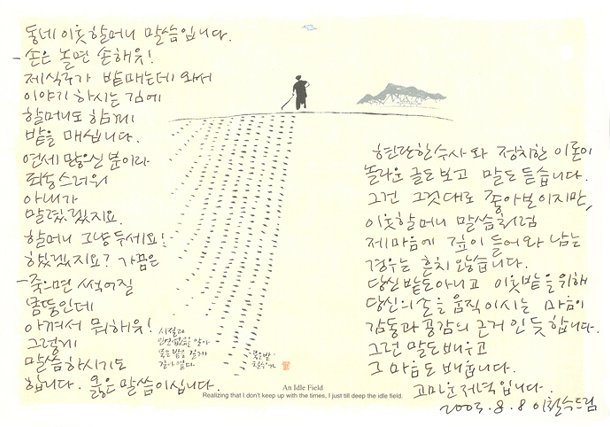 동네 이웃 할머니 말씀입니다.
- 손은 놀면 손해유!
제 식구가 밭매는데 와서
이야기 하시는 김에
할머니도 함께
밭을 매십니다.
연세 많으신 분이라
죄송스러워
아내가
말렸겠지요.
할머니 그냥 두세요!
했겠지요? 가끔은
- 죽으면 썩어질
몸뚱인데
아껴서 뭐해유!
그렇게
말씀 하시기도
합니다. 옳은 말씀이십니다.
현란한 수사와 정치한 이론이
놀라운 글도 보고 말도 듣습니다.
그건 그것대로 좋아보이지만,
이웃할머니 말씀처럼
제 마음에 깊이 들어와 남는
경우는 흔치 않습니다.
당신 밭도 아니고 이웃밭을 위해
당신의 손을 움직이시는 마음이
감동과 공감의 근거인 듯 합니다.
그런 말도 배우고
그 마음도 배웁니다.
고마운 저녁입니다.
2003.8.8 이철수드림
An Idle Field
Realizing that I don't keep up with the times, I just till deep the idle field.